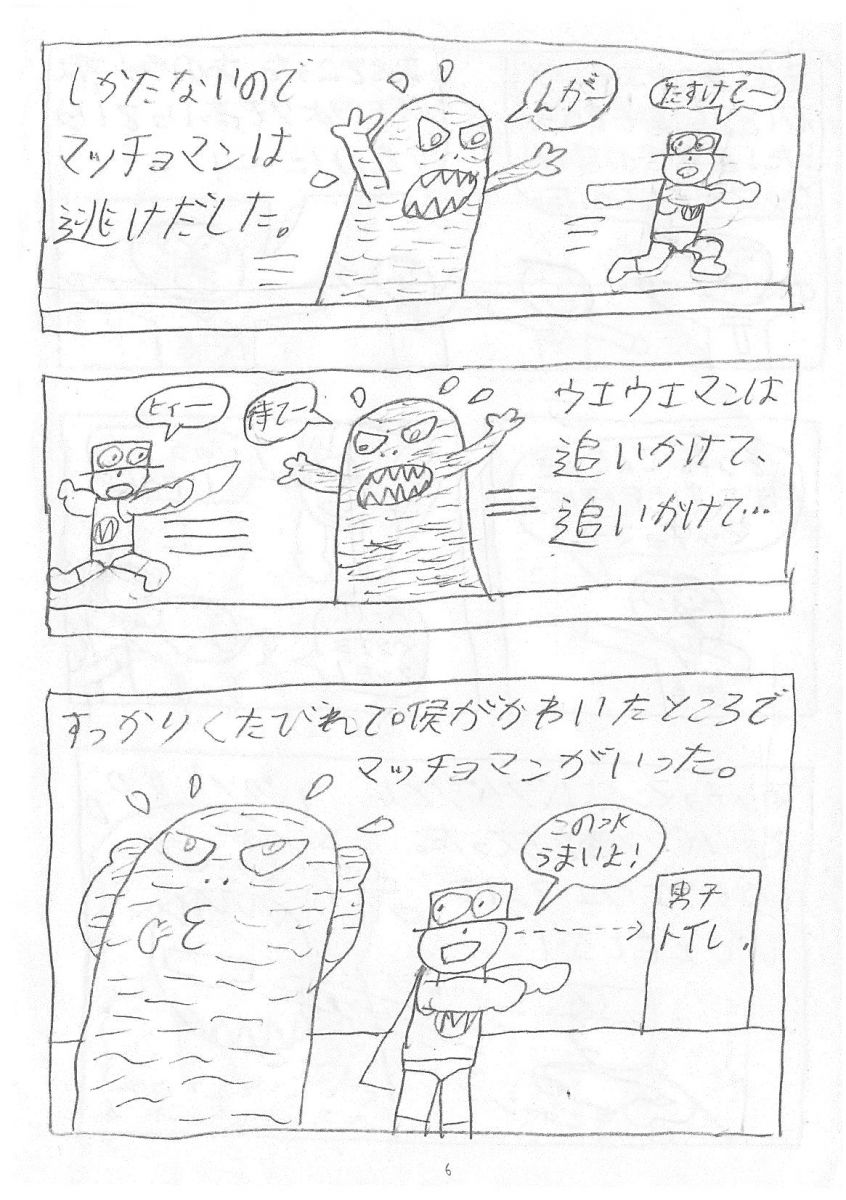 しかたないので
マッチョマンは
逃げだした。
んがー
たすけてー
ヒィー
待てー
ウエウエマンは
追いかけて、
追いかけて…
すっかりくたびれて。喉がかわいたところで
マッチョマンがいった。
この水
うまいよ!
男子
トイレ
M
M
M
6